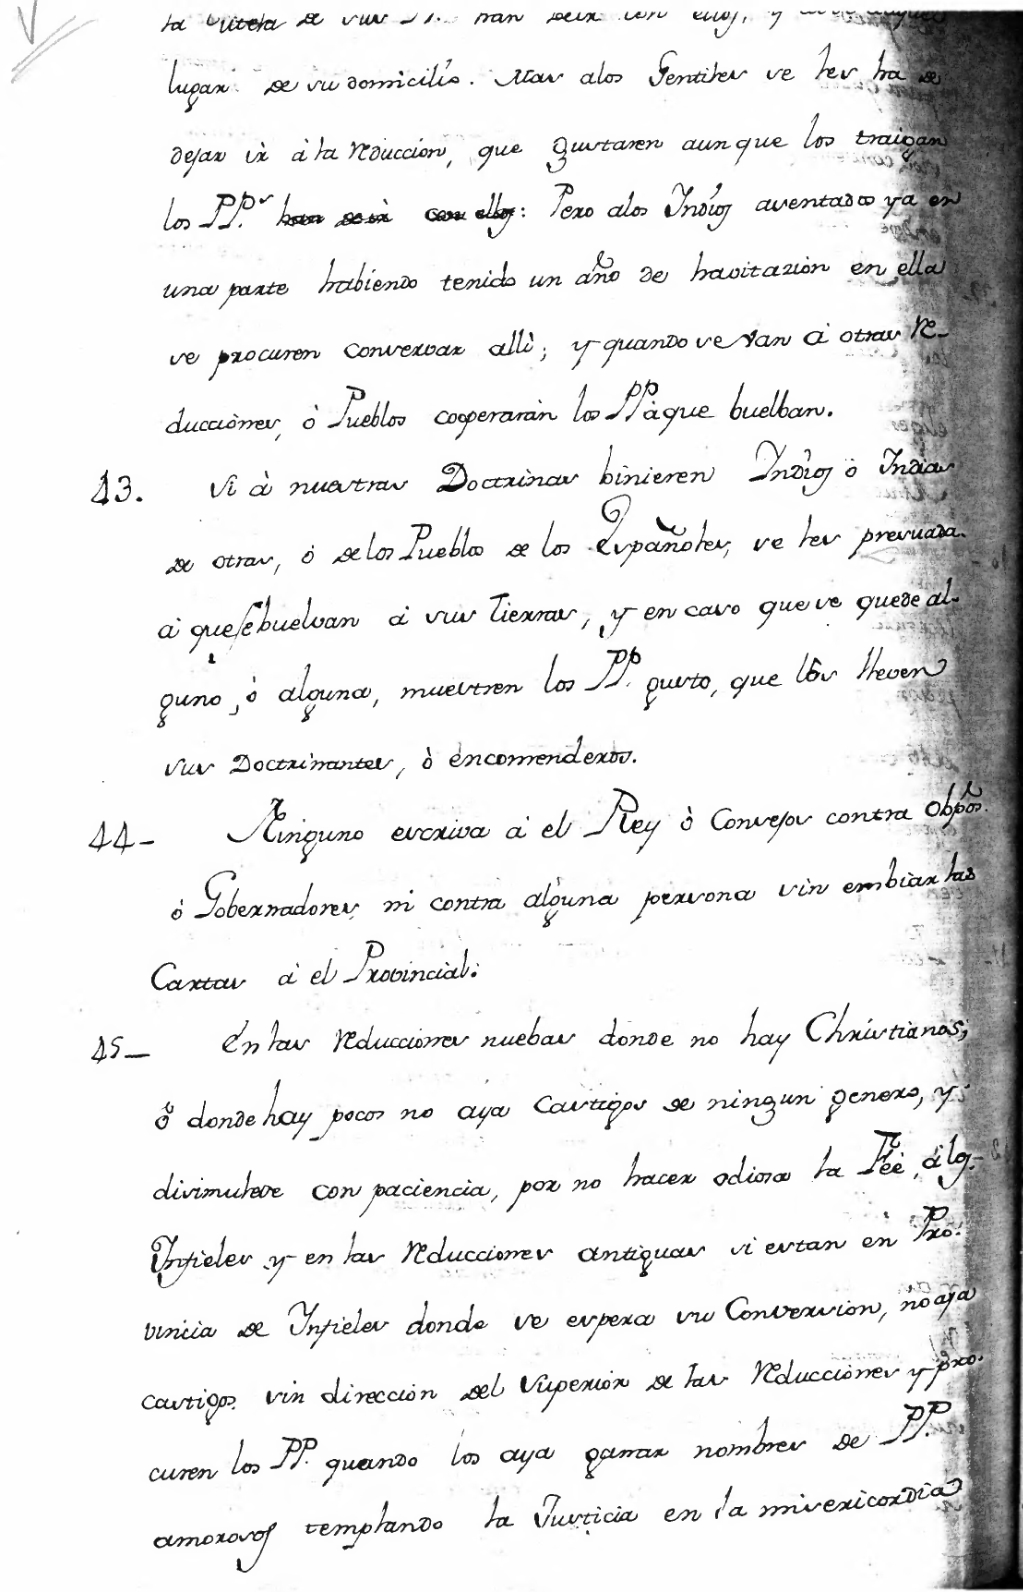 la vuelta de sus PP. han deir con ellos, y
lugar de su domicilio. Mas alos Gentiles se les ha de
dejar ir à la Reduccion, que gustaren aunque los traigan
los PP.s han de ir con ellos: Pero alos Indios asentados ya en
una parte habiendo tenido un año de havitazion en ella
se procuren conservar alli; y quando se van à otras Re-
ducciones, ò Pueblos cooperaràn los PP à que buelban.
43. Si à nuestras Doctrinas binieren Indios ò Indias
de otras, ò de los Pueblos de los Españoles, se les presuada
à que se buelvan à sus tierras, y en caso que se quede al-
guno, ò alguna, muestren los PP. gusto, que los lleven
sus Doctrinantes, ò encomenderos.
44- Ninguno escriva à el Rey ò Consejos contra Obpos.
ò Gobernadores, ni contra alguna persona sin embiar las
Cartas à el Provincial.
45- En las Reducciones nuebas donde no hay Christianos,
ò donde hay pocos no aya castigos de ningun genero, y
disimulese con paciencia, por no hacer odiosa la Fèe, à los
Infieles y en las Reducciones antiguas si estan en Pro-
vincia de Infieles donde se espera su Conversion, no aja
castigos sin direccion del Superior de las Reducciones y pro-
curen los PP. quando los aya ganar nombres de PP.
amorosos templando la Justicia en la misericordia